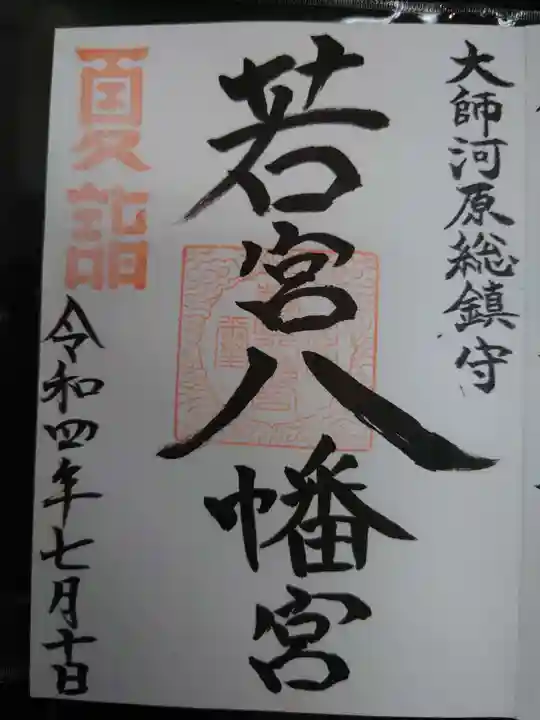 大師河原総鎮守
若宮八幡宮
夏詣
令和四年七月十日